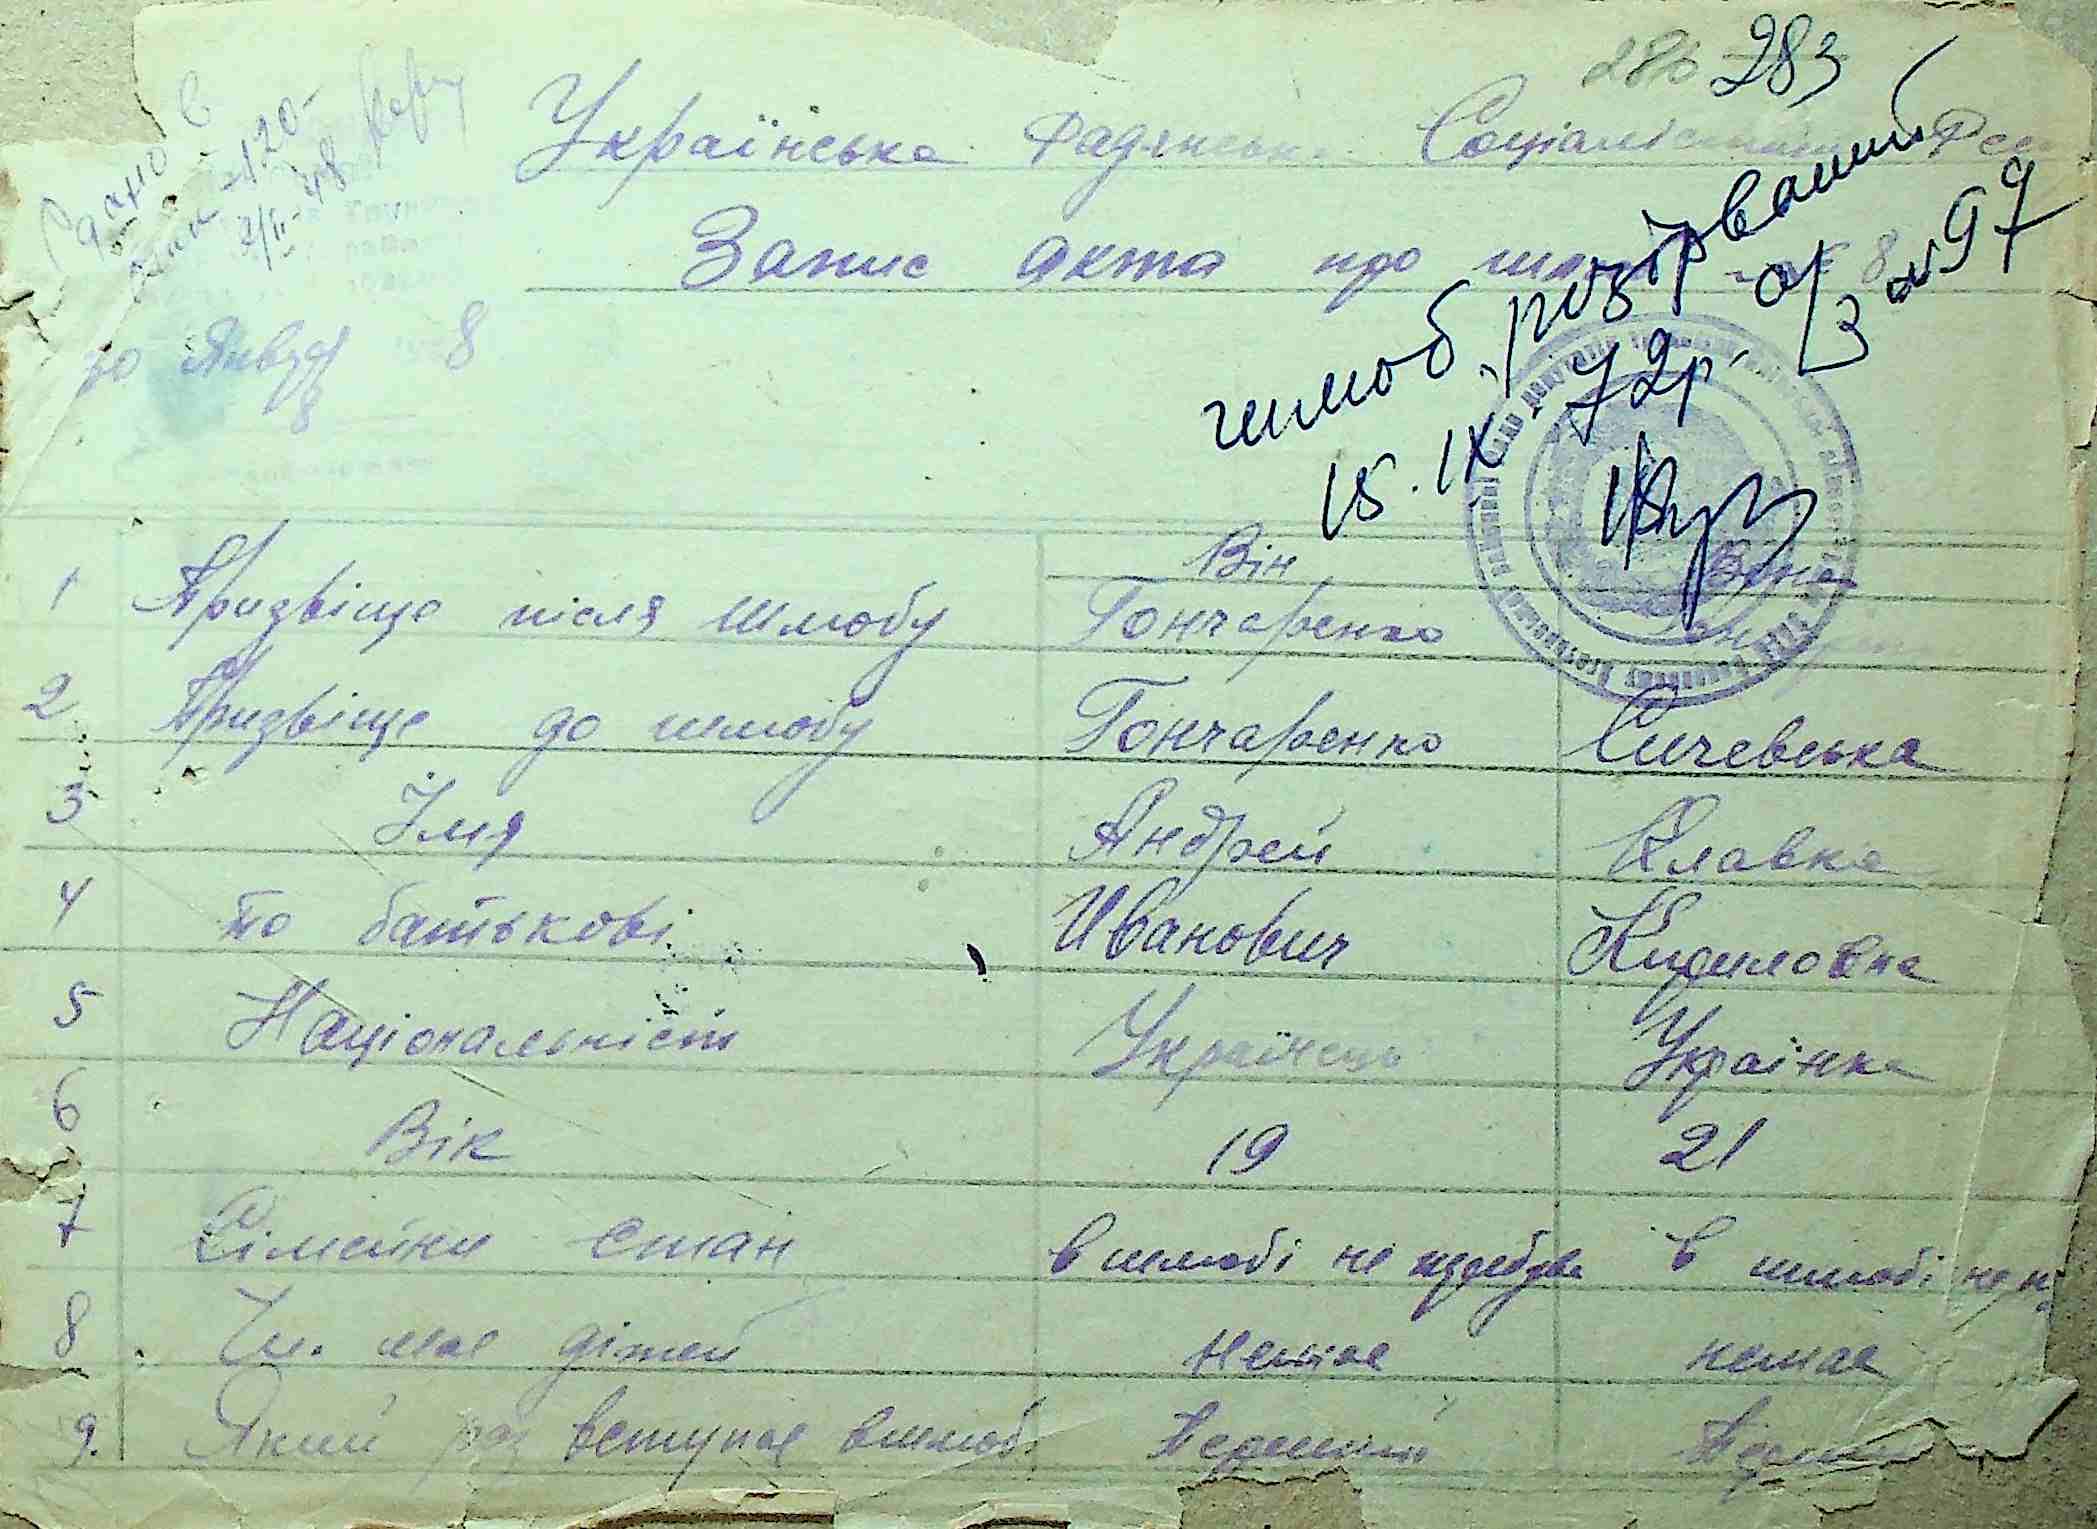 286 283
Українська Радянська Соціалістична
Запис акта про шлюб № 8
шлюб розірваний
15.IX 72р. а/з №97
30 Января 8
Він Вона
1 Призвіще після шлюбу Гончаренко Гончаренко
2 Призвіще до шлюбу Гончаренко Сичевська
3 Імя Андрей Клавка
4 По батькові Иванович Кириловна
5 Національніст Українець Украінка
6 Вік 19 21
7 Сімейни стан в шлюбі не перебува в шлюбі не
8 Чи має дітей немає немає
9. Який раз вступає в шлюб Перший Перший